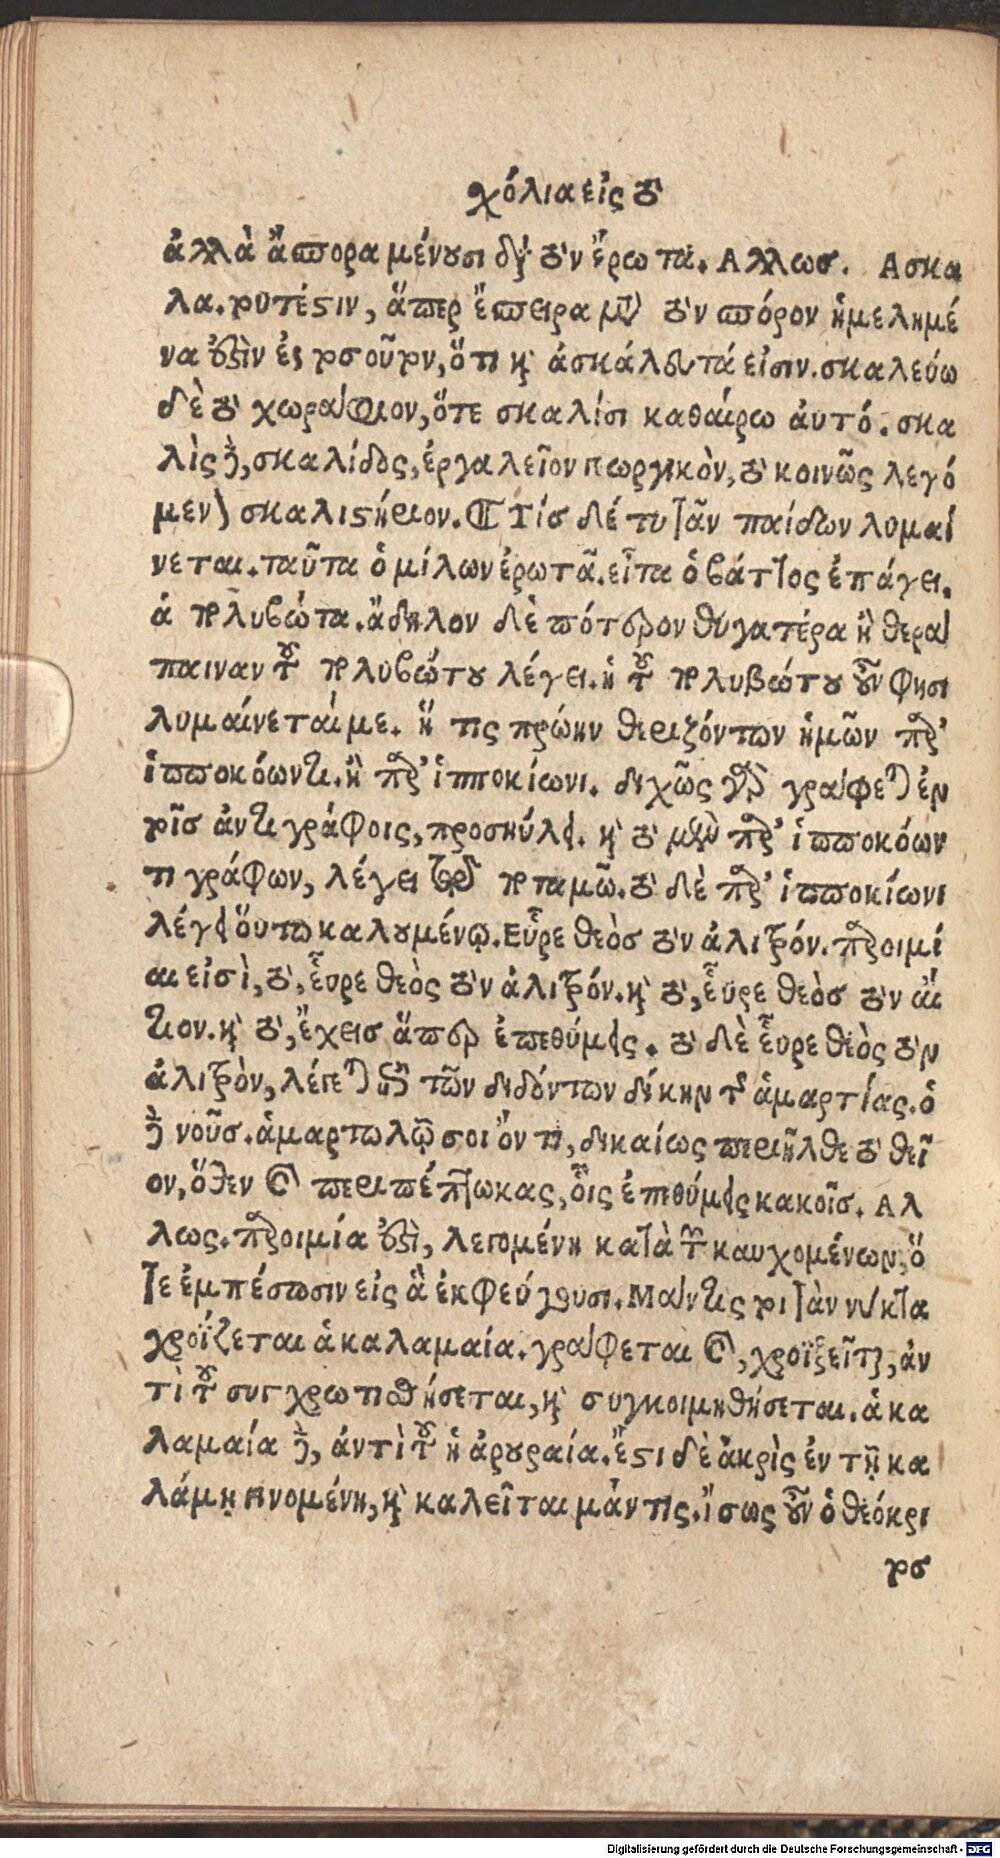 χόλια εἰς τὸ
ἀλλὰ ἄπορα μένουσι διὰ τὸν ἔρωτα. Αλλωσ. Ασκα
λα. τουτέστιν, ἅπερ ἔσπειρα μετὰ τὸν σπόρον ἠμελημέ
να ἐστὶν ἐς τοσοῦτον, ὅτι καὶ ἀσκάλευτά εἰσιν. σκαλεύω
δὲ τὸ χωράφιον, ὅτε σκαλίσι καθαίρω αὐτό. σκα
λὶς γὰρ, σκαλίδος, ἐργαλεῖον γεωργικὸν, τὸ κοινῶς λεγό
μενον σκαλιστήριον. Τίσ δέ τυ τᾶν παίδων λυμαί
νεται. ταῦτα ὁ μίλων ἐρωτᾶ. εἶτα ὁ βάττος ἐπάγει.
ἁ πολυβώτα. ἄδηλον δὲ πότερον θυγατέρα ἢ θερά
παιναν τοῦ πολυβώτου λέγει. ἡ τοῦ πολυβώτου οὖν φησι
λυμαίνεταί με. ἥ τις πρώην θεριζόντων ἡμῶν παρ'
ἱπποκόωντι. ἢ παρ' ἱπποκίωνι. διχῶς γὰρ γράφεται ἐν
τοῖσ ἀντιγράφοις, προσηύλει. καὶ τὸ μὲν παρ' ἱπποκόων
τι γράφων, λέγει παρὰ ποταμῶ. τὸ δὲ παρ' ἱπποκίωνι
λέγει οὕτω καλουμένῳ. Εὗρε θεὸσ τὸν ἀλιτρόν. παροιμί
αι εἰσὶ, τὸ, εὗρε θεὸς τὸν ἀλιτρόν. καὶ τὸ, εὗρε θεὸσ τὸν αἴ
τιον. καὶ τὸ, ἔχεισ ἅπερ ἐπεθύμεις. τὸ δὲ εὗρε θεὸς τὸν
ἀλιτρὸν, λέγεται ἐπὶ τῶν διδόντων δίκην τῆς ἁμαρτίας. ὁ
δὲ νοῦσ. ἁμαρτωλῷ σοι ὄντι, δικαίως περιῆλθε τὸ θεῖ
ον, ὅθεν καὶ περιπέπτωκας, οἷς ἐπεθύμεις κακοῖσ. Αλ
λως. παροιμία ἐστὶ, λεγομένη κατὰ τῶν καυχομένων, ὅ
τε ἐμπέσωσιν εἰς ἃ ἐκφεύγουσι. Μάντις τοι τὰν νύκτα
χροΐζεται ἁ καλαμαία. γράφεται καὶ, χροϊξεῖται, ἀν
τὶ τοῦ συγχρωτισθήσεται, καὶ συγκοιμηθήσεται. ἁ κα
λαμαία δὲ, ἀντὶ τοῦ ἡ ἀρουραία. ἔστι δὲ ἀκρὶς ἐν τῇ κα
λάμῃ γινομένη, καὶ καλεῖται μάντις. ἴσως οὖν ὁ θεόκρι
τοσ
Digitalisierung gefördert durch die Deutsche Forschungsgemeinschaft - DFG